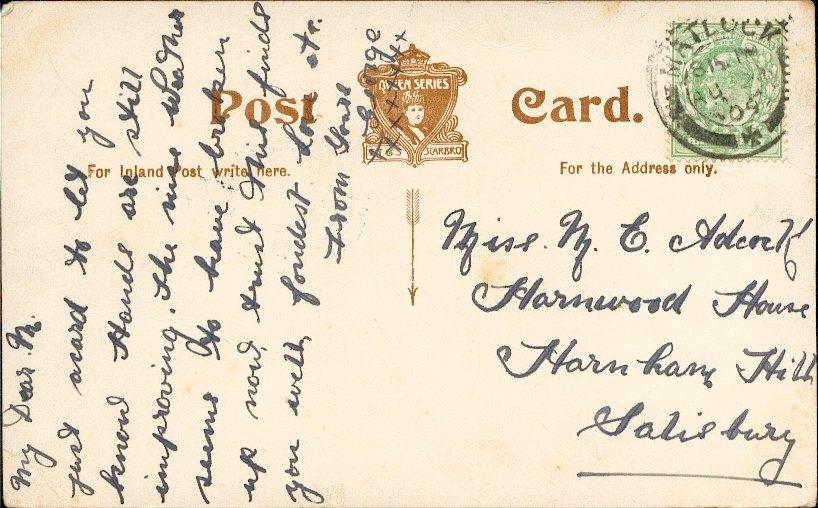 Post Card.
QUEEN SERIES
SCARBRO
For Inland Post write here.
For the Address only.
MATLOCK
My Dear M.
just acard to let you
know Hands are still
improving. The nice weather
seems to have broken
up now, trust this finds
you well, fondest love etc.
From Yours
George
xxxxxxx
Miss. M. E. Adcock
Harnwood House
Harnham Hill
Salisbury